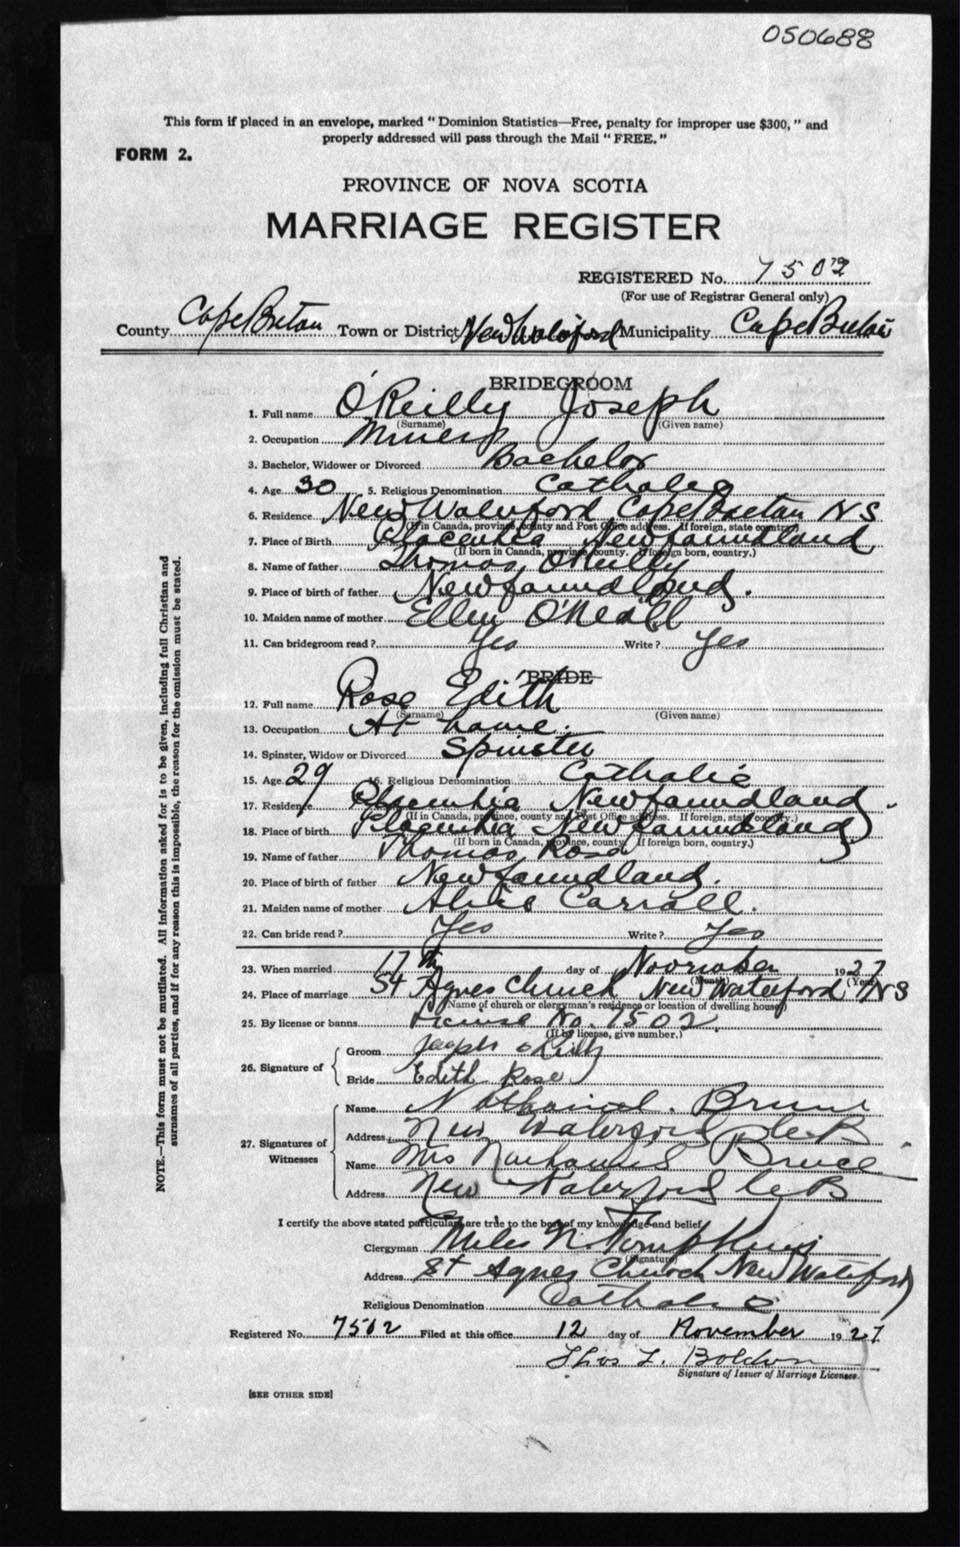 050688
This form if placed in an envelope, marked "Dominion Statistics—Free, penalty for improper use $300," and
properly addressed will pass through the Mail "FREE."
FORM 2.
PROVINCE OF NOVA SCOTIA
MARRIAGE REGISTER
REGISTERED No. 7502
(For use of Registrar General only)
County Cape Breton Town or District New Waterford Municipality Cape Breton
BRIDEGROOM
1. Full name O'Reilly Joseph
(Surname) (Given name)
2. Occupation Miner
3. Bachelor, Widower or Divorced Bachelor
4. Age 30 5. Religious Denomination Catholic
6. Residence New Waterford Cape Breton NS
(If in Canada, province, county and Post Office address. If foreign, state country.)
7. Place of Birth Placentia Newfoundland
(If born in Canada, province, county. If foreign born, country.)
8. Name of father Thomas O'Reilly
9. Place of birth of father Newfoundland.
10. Maiden name of mother Ellen O'Neall
11. Can bridegroom read? Yes Write? Yes
BRIDE
12. Full name Rose Edith
(Surname) (Given name)
13. Occupation At home.
14. Spinster, Widow or Divorced Spinster
15. Age 29 16. Religious Denomination Catholic
17. Residence Placentia Newfoundland.
(If in Canada, province, county and Post Office address. If foreign, state country.)
18. Place of birth Placentia Newfoundland
(If born in Canada, province, county. If foreign born, country.)
19. Name of father Thomas Rose
20. Place of birth of father Newfoundland.
21. Maiden name of mother Alice Carroll.
22. Can bride read? Yes Write? Yes
23. When married 17th day of November 1927
(Month) (Year)
24. Place of marriage St Agnes Church New Waterford NS
(Name of church or clergyman's residence or location of dwelling house)
25. By license or banns License No. 7502
(If by license, give number.)
26. Signature of
Groom Joseph O Reilly
Bride Edith Rose
27. Signatures of Witnesses
Name Nathaniel Bruce
Address New Waterford C.B
Name Mrs Nathaniel Bruce
Address New Waterford C.B
I certify the above stated particulars are true to the best of my knowledge and belief
Clergyman Miles N. Tompkins
(Signature)
Address St Agnes Church New Waterford
Religious Denomination Catholic
Registered No. 7502 Filed at this office 12 day of November 1927
Thos L.
Signature of Issuer of Marriage Licenses.
[SEE OTHER SIDE]
NOTE.—This form must not be mutilated. All information asked for is to be given, including full Christian and
surnames of all parties, and if for any reason this is impossible, the reason for the omission must be stated.